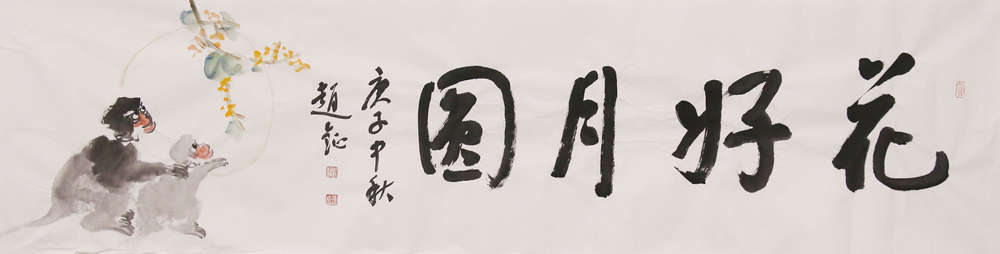 花好月圆
庚子中秋
趙鉦